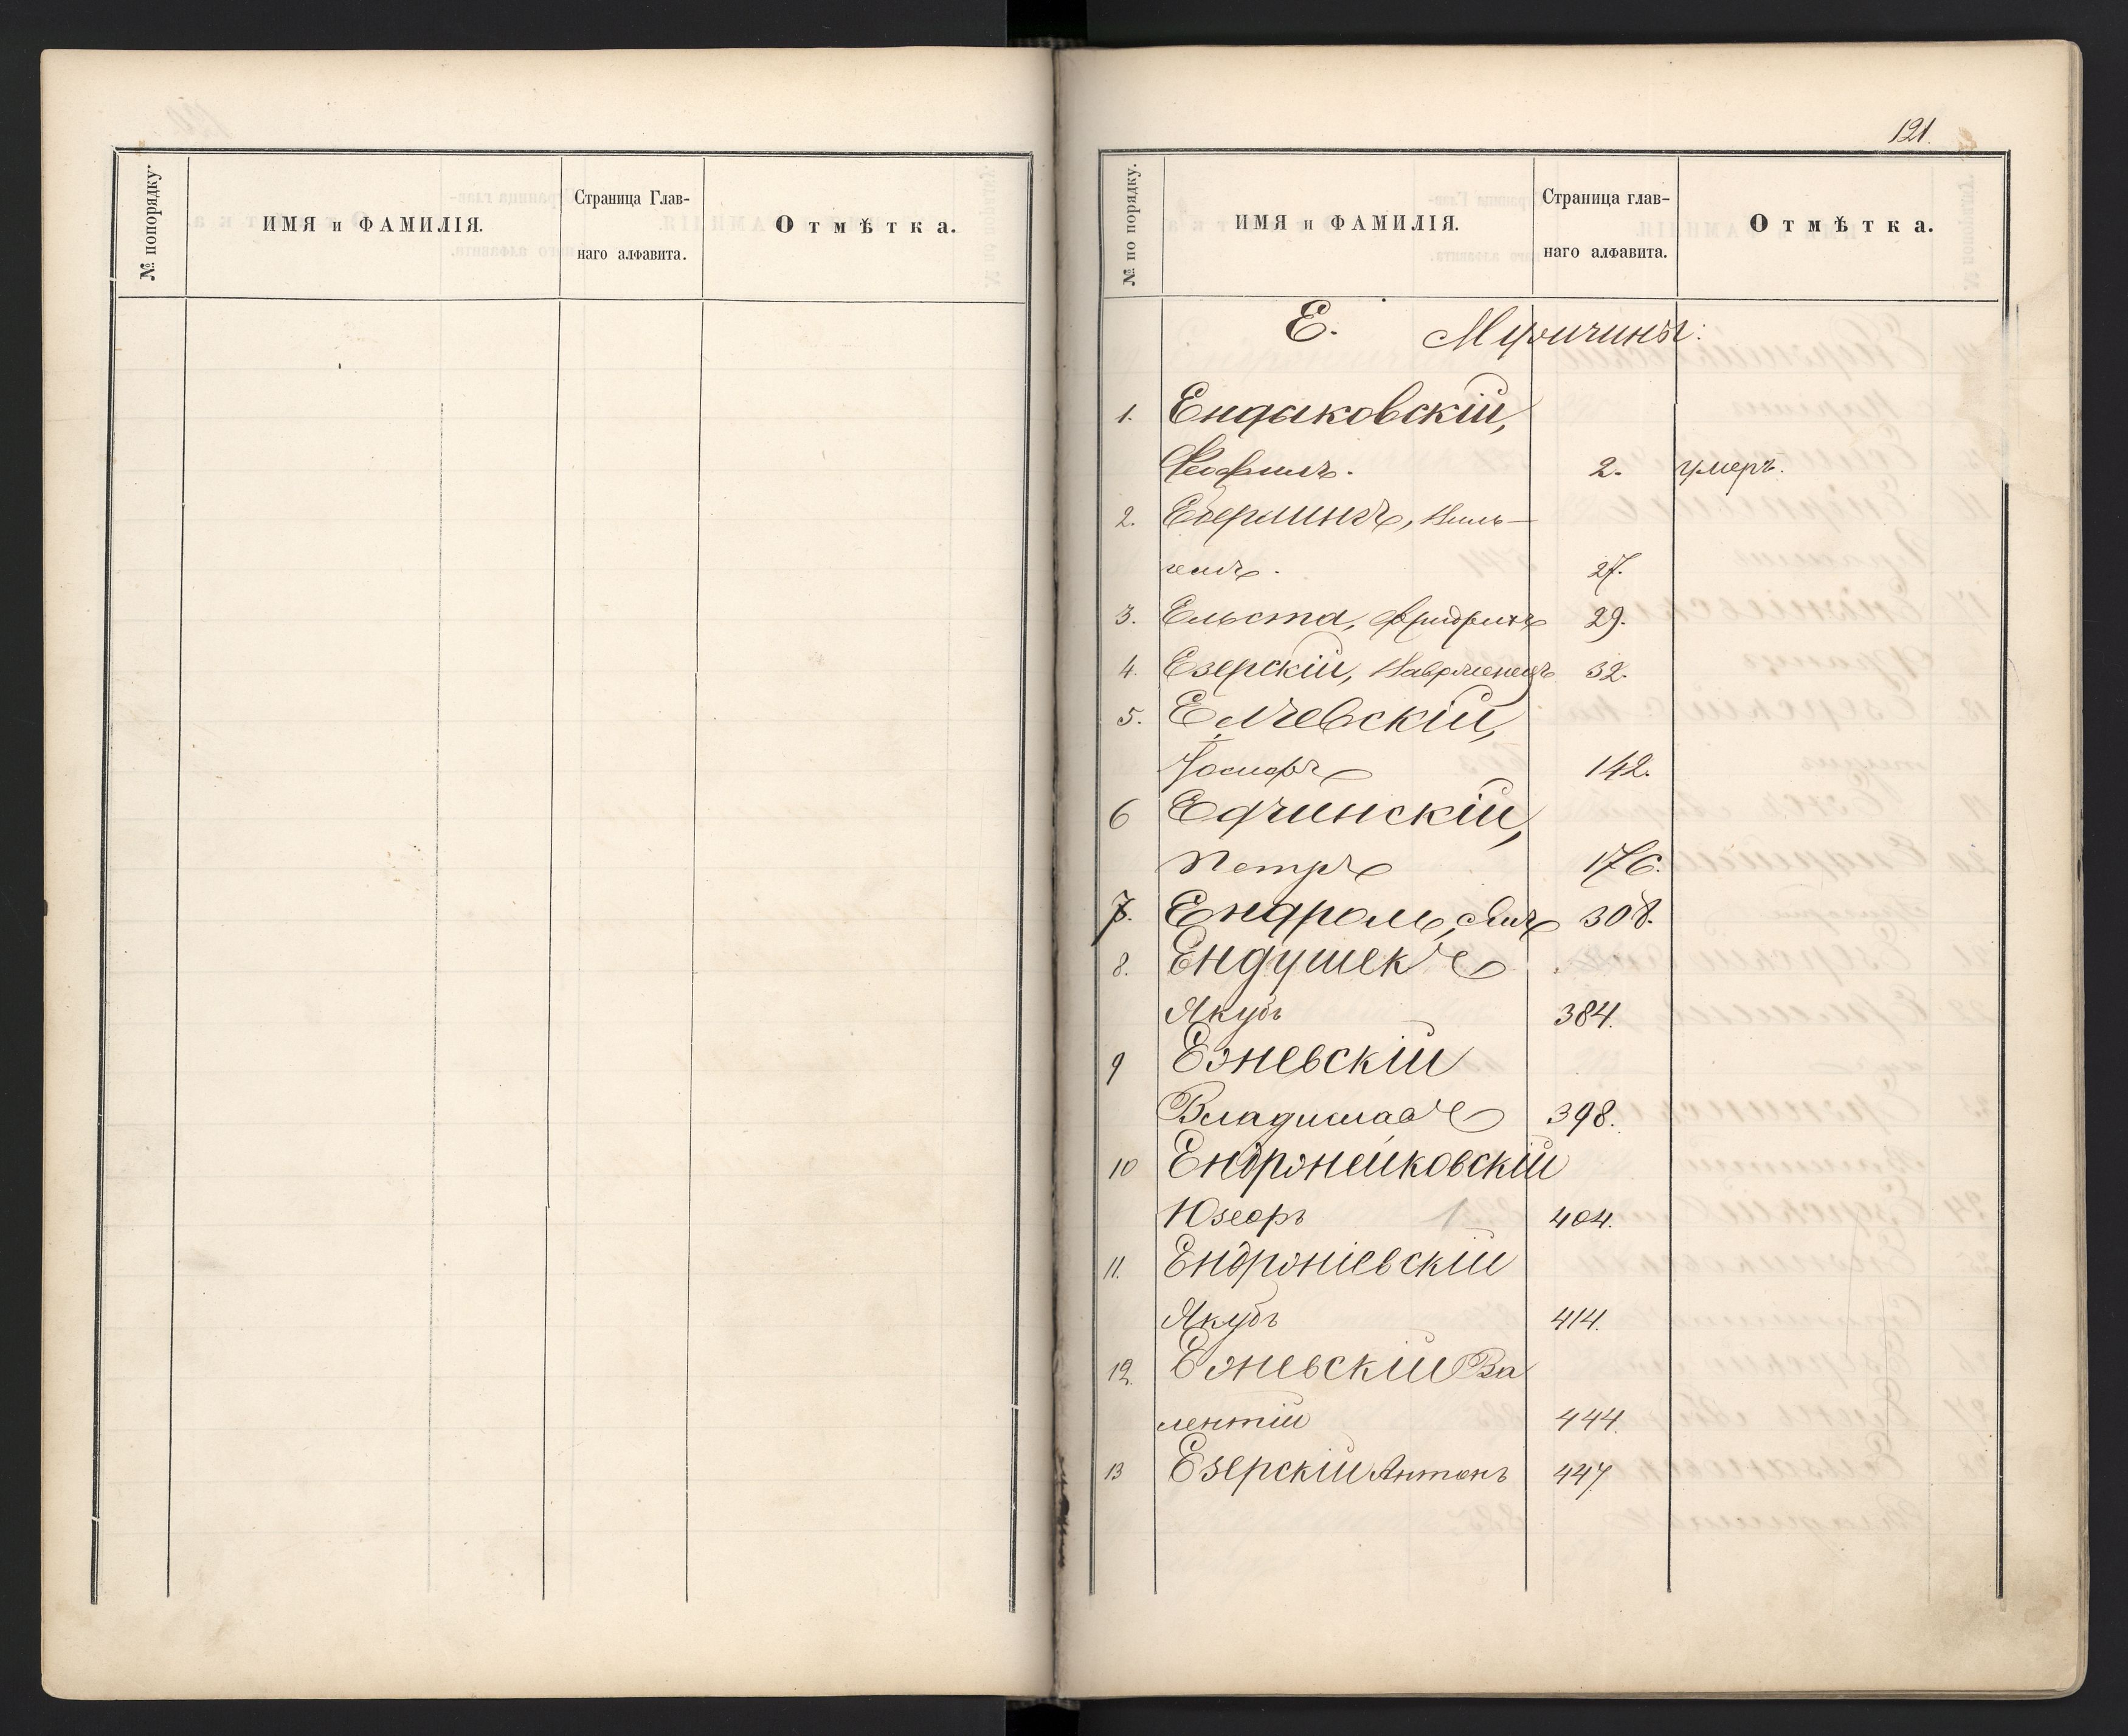 № попорядку.
ИМЯ и ФАМИЛІЯ.
Страница Глав-
наго алфавита.
Отмѣтка.
121.
№ по порядку.
ИМЯ и ФАМИЛІЯ.
Страница глав-
наго алфавита.
Отмѣтка.
Е. Мужчины:
1. Ендыковскій,
Феофилъ. 2. умеръ.
2. Еберлингъ, Виль-
гелмъ. 27.
3. Ельста, Фридрихъ 29.
4. Езерскій, Лавреженецъ 32.
5. Елчевскій,
Іосифъ 142.
6 Едчинскій,
Петръ 176.
7. Ендроль, Янъ 308.
8. Ендушекъ
Якубъ 384.
9 Ежневскій
Владиславъ 398.
10 Ендржейковскій
Юзефъ 404.
11. Ендржіевскій
Якубъ 414.
12. Ежневскій Ва
лентій 444.
13 Езерскій Антонъ 447